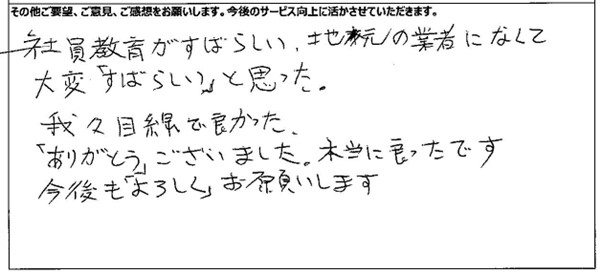 その他ご要望、ご意見、ご感想をお願いします。今後のサービス向上に活かさせていただきます。
社員教育がすばらしい、地元の業者になくて
大変「すばらしい」と思った。
我々目線で良かった、
「ありがとう」ございました。本当に良ったです
今後も「よろしく」お願いします